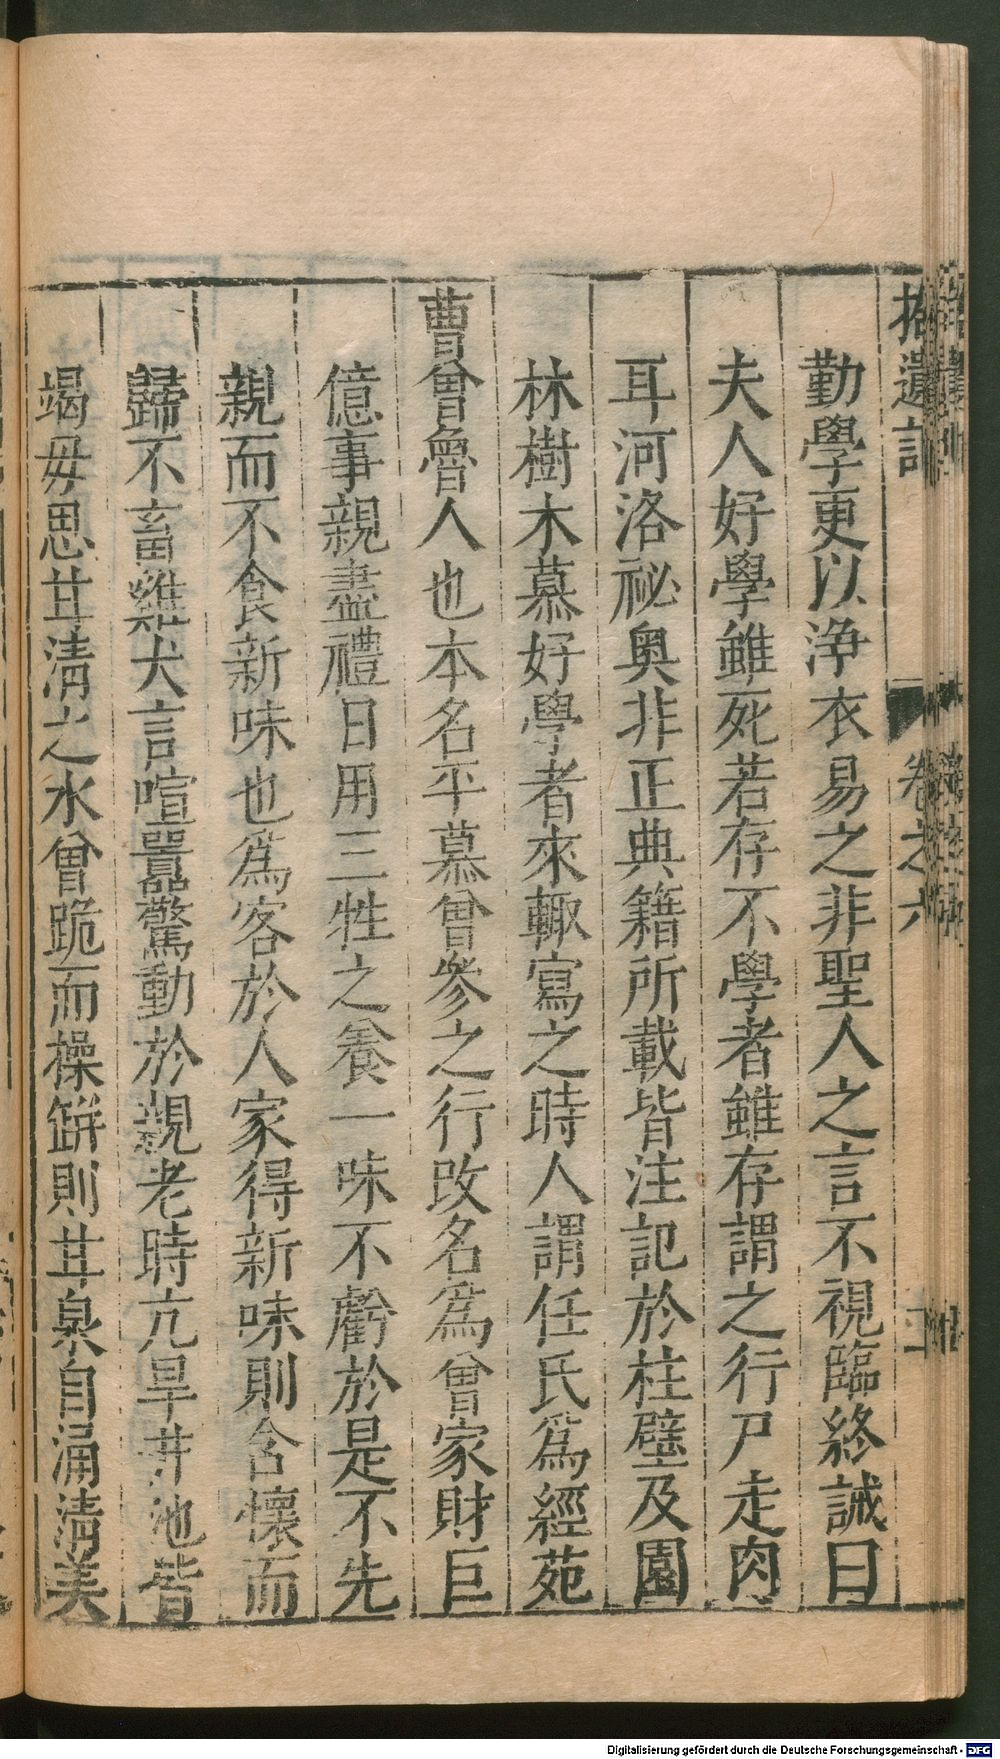 拾遺記　卷之六
勤學更以淨衣易之非聖人之言不視臨終誡曰
夫人好學雖死若存不學者雖存謂之行尸走肉
耳河洛祕奧非正典籍所載皆注記於柱壁及園
林樹木慕好學者來輙寫之時人謂任氏爲經苑
曹曾魯人也本名平慕曾參之行改名爲曾家財巨
億事親盡禮日用三牲之養一味不虧於是不先
親而不食新味也爲客於人家得新味則含懷而
歸不畜雞犬言喧嚣驚動於親老時亢旱井池皆
竭毋思甘清之水曾跪而操缾則甘泉自涌清美
Digitalisierung gefördert durch die Deutsche Forschungsgemeinschaft - DFG